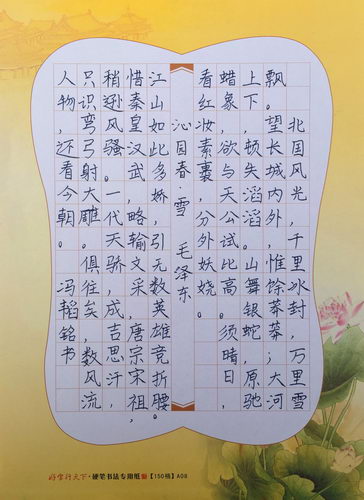 北国风光，千里冰封，万里雪
飘。望长城内外，惟馀莽莽；大河
上下，顿失滔滔。山舞银蛇，原驰
蜡象，欲与天公试比高。须晴日，
看红妆素裹，分外妖娆。
沁园春·雪 毛泽东
江山如此多娇，引无数英雄竞折腰。
惜秦皇汉武，略输文采，唐宗宋祖，
稍逊风骚。一代天骄，成吉思汗，
只识弯弓射大雕。俱往矣，数风流
人物，还看今朝。 冯韬铭书
好字行天下·硬笔书法专用纸【150格】A08